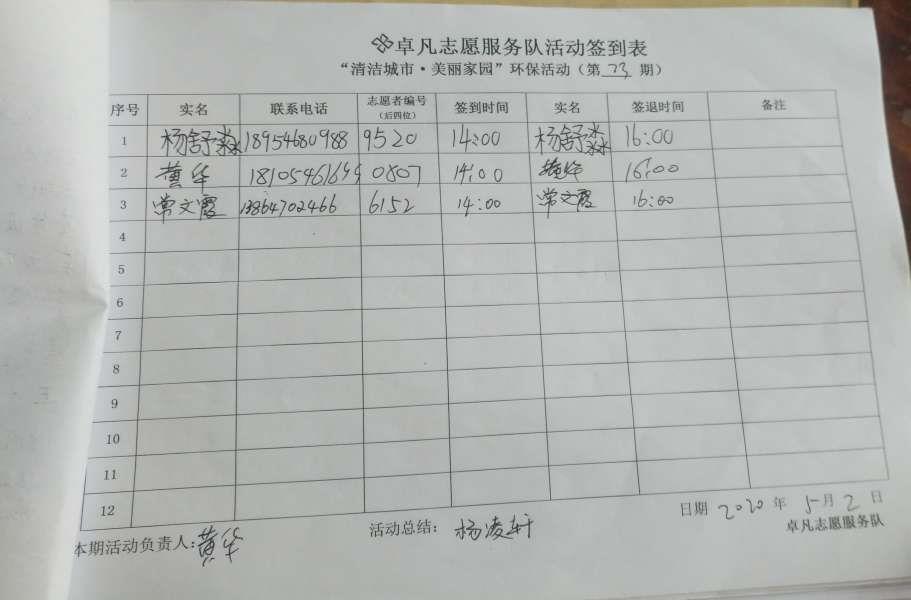 卓凡志愿服务队活动签到表
“清洁城市·美丽家园”环保活动（第 23 期）
序号 实名 联系电话 志愿者编号（后四位） 签到时间 实名 签退时间 备注
1 杨舒淼 18954680988 9520 14:00 杨舒淼 16:00
2 黄华 0807 14:00 黄华 16:00
3 常文霞 13864702466 6152 14:00 常文霞 16:00
4
5
6
7
8
9
10
11
12
日期 2020 年 5 月 2 日
卓凡志愿服务队
本期活动负责人：黄华 活动总结：杨凌轩